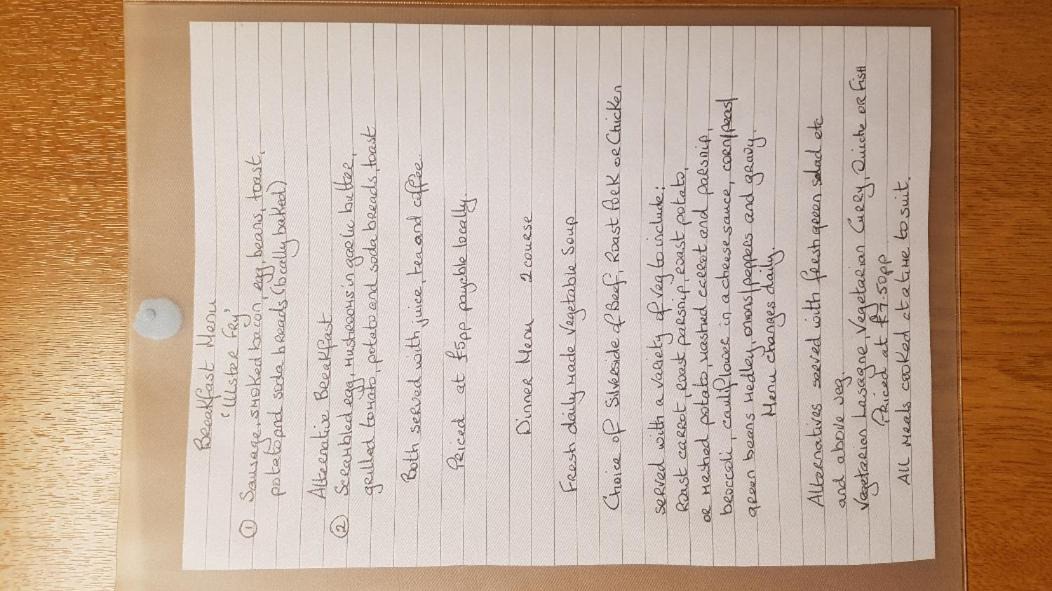 Breakfast Menu
'Ulster Fry'
① Sausage, smoked bacon, egg, beans, toast,
potato and soda breads (locally baked)
Alternative Breakfast
② Scrambled egg, mushrooms in garlic butter,
grilled tomato, potato and soda breads, toast
Both served with juice, tea and coffee
Priced at £5pp payable locally.
Dinner Menu 2 course
Fresh daily made Vegetable Soup
Choice of Silverside of Beef, Roast Pork or Chicken
served with a variety of veg to include:
Roast carrot, roast parsnip, roast potato,
or mashed potato, mashed carrot and parsnip,
broccoli, cauliflower in a cheese sauce, corn/peas/
green beans medley, onions/peppers and gravy.
Menu changes daily.
Alternatives served with fresh green salad etc
and above veg.
Vegetarian Lasagne, Vegetarian Curry, Quiche or Fish
Priced at £7.50pp
All meals cooked at a time to suit.